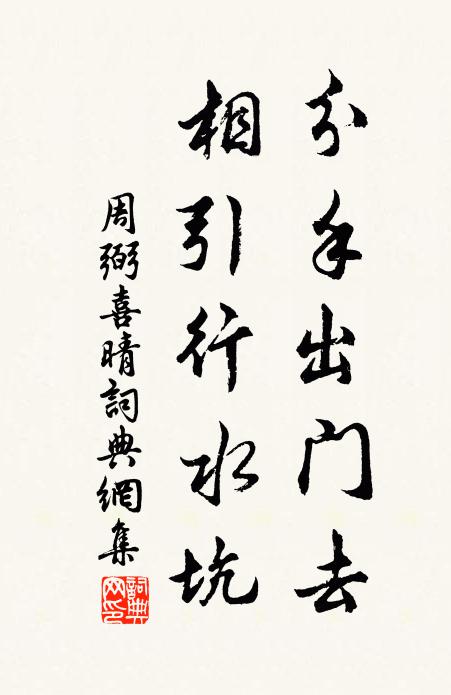 分手出門去
相引行水坑
周弼喜晴詞典網集
詞典網印